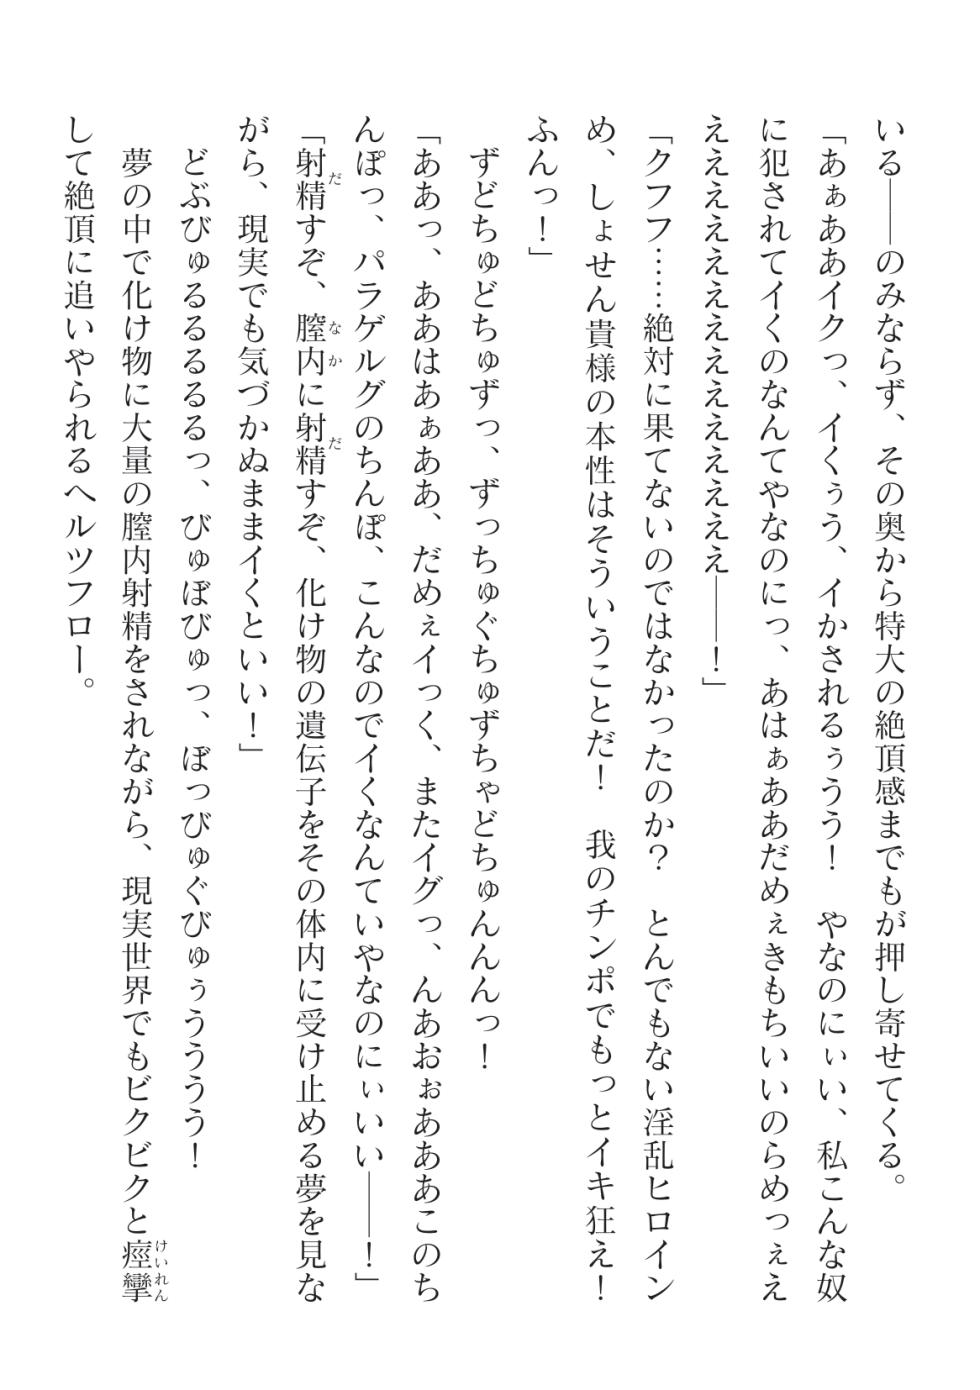 いる――のみならず、その奥から特大の絶頂感までもが押し寄せてくる。
「あぁああイクっ、イくぅう、イかされるぅうう！　やなのにぃい、私こんな奴
に犯されてイくのなんてやなのにっ、あはぁああだめぇきもちいいのらめっぇえ
ええええええええええええええ――！」
「クフフ……絶対に果てないのではなかったのか？　とんでもない淫乱ヒロイン
め、しょせん貴様の本性はそういうことだ！　我のチンポでもっとイキ狂え！
ふんっ！」
ずどちゅどちゅずっ、ずっちゅぐちゅずちゃどちゅんんんっ！
「ああっ、ああはあぁああ、だめぇイっく、またイグっ、んあおぉあああこのち
んぽっ、パラゲルグのちんぽ、こんなのでイくなんていやなのにぃいい――！」
「射精すぞ、膣内に射精すぞ、化け物の遺伝子をその体内に受け止める夢を見な
がら、現実でも気づかぬままイくといい！」
どぶびゅるるるるるっ、びゅぼびゅっ、ぼっびゅぐびゅぅうううう！
夢の中で化け物に大量の膣内射精をされながら、現実世界でもビクビクと痙攣
して絶頂に追いやられるヘルツフロー。